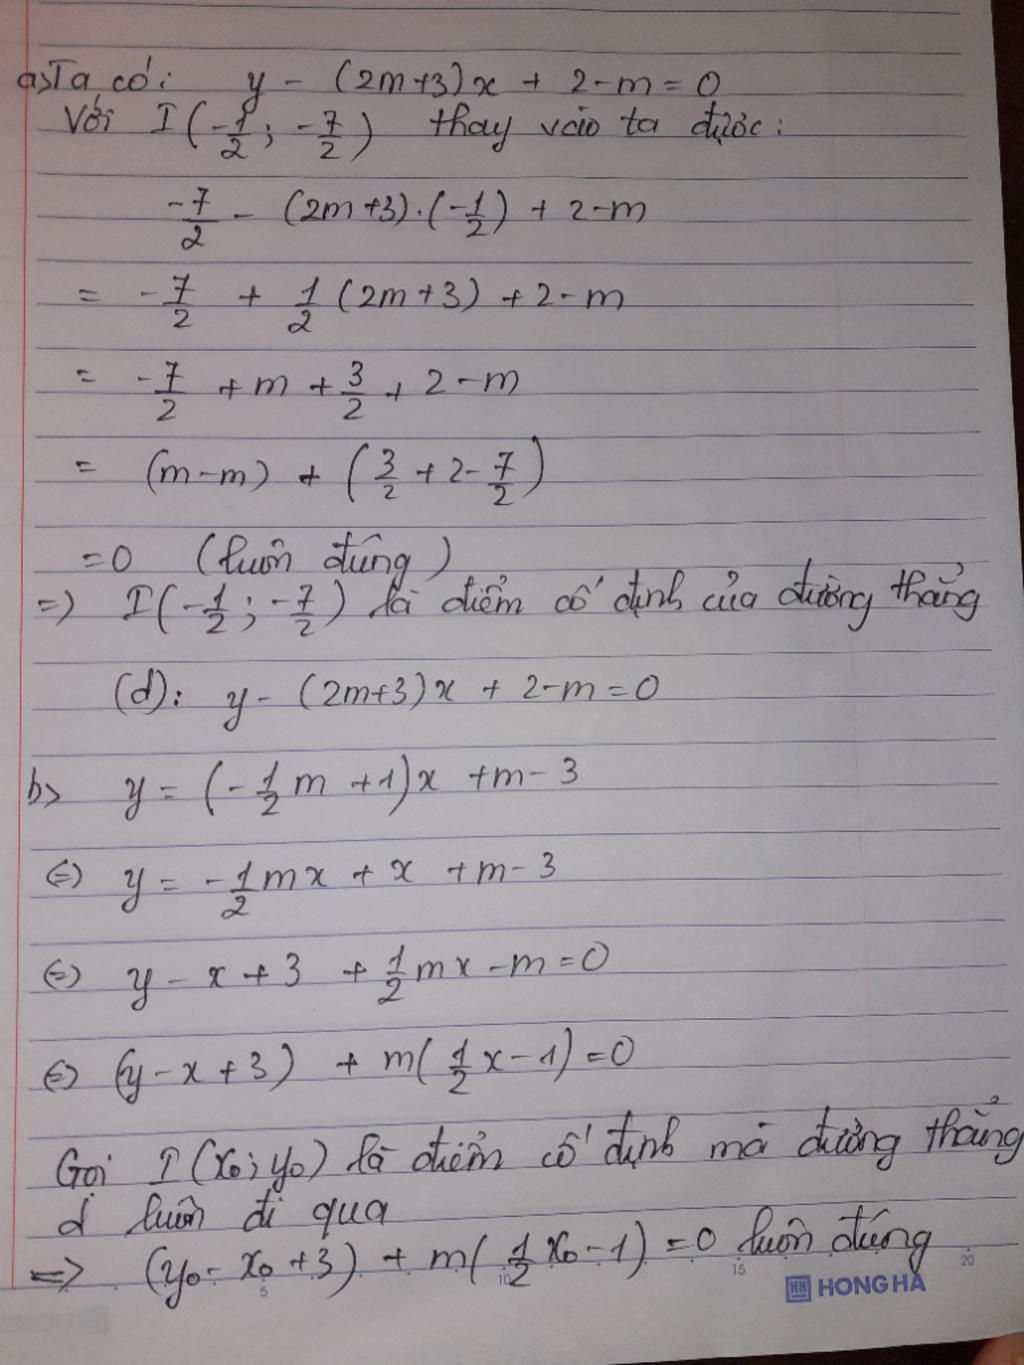 a> Ta có: y - (2m+3)x + 2-m = 0
Với I(-1/2; -7/2) thay vào ta được:
-7/2 - (2m+3).(-1/2) + 2-m
= -7/2 + 1/2 (2m+3) + 2-m
= -7/2 + m + 3/2 + 2-m
= (m-m) + (3/2 + 2 - 7/2)
= 0 (luôn đúng)
=> I(-1/2; -7/2) là điểm cố định của đường thẳng
(d): y - (2m+3)x + 2-m = 0
b> y = (-1/2 m + 1)x + m - 3
(=) y = -1/2 mx + x + m - 3
(=) y - x + 3 + 1/2 mx - m = 0
(=) (y - x + 3) + m(1/2 x - 1) = 0
Gọi I(x₀; y₀) là điểm cố định mà đường thẳng
d luôn đi qua
=> (y₀ - x₀ + 3) + m(1/2 x₀ - 1) = 0 luôn đúng
5 10 15 20
HH HONG HA